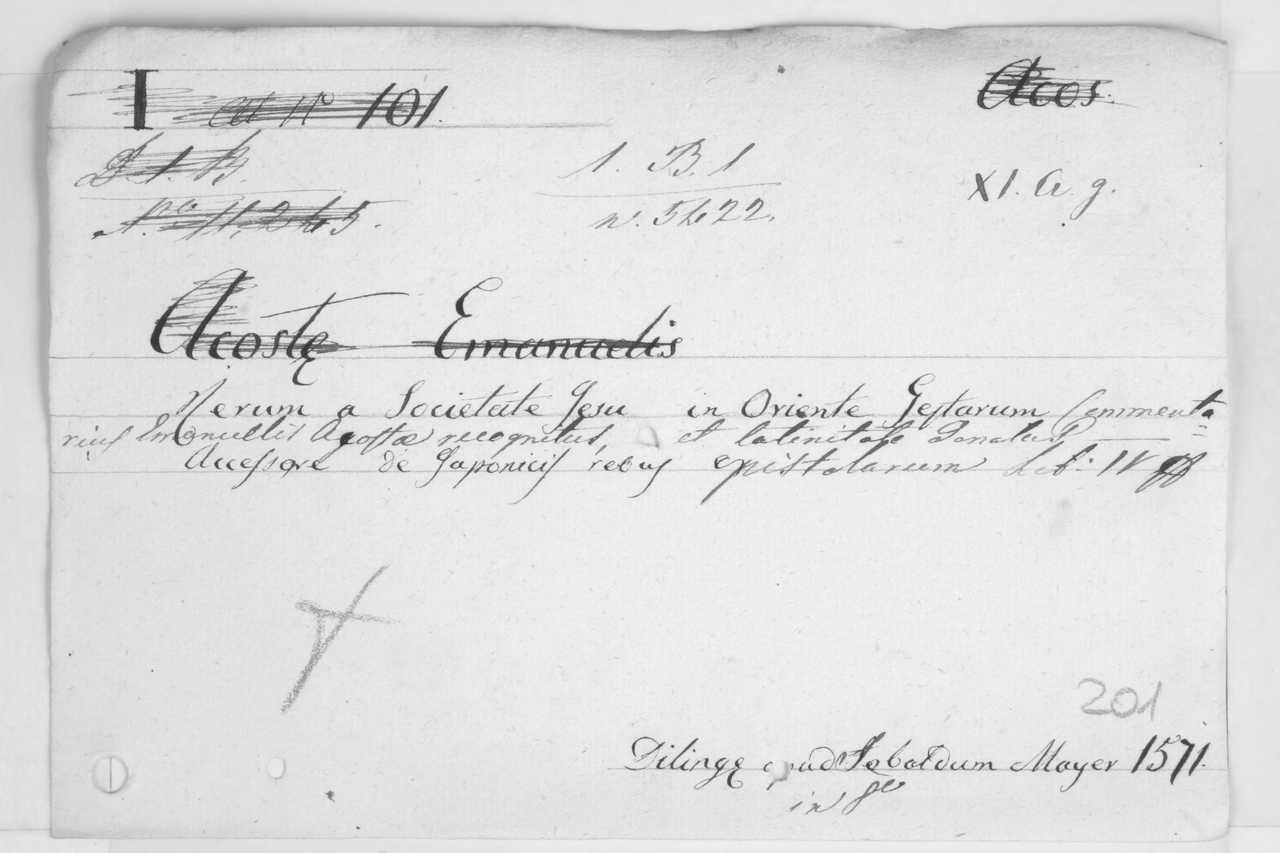 I ad N 101. Acos.
D. 1. B. 1. B. 1 XI. a. g.
N.ro 11,245. n. 5422.
Acostę Emanuelis
Rerum a Societate Jesu in Oriente Gestarum Commenta=
rius Emanuelis Acostæ recognitus, et latinitate Donatus
Accessere de Japonicis rebus epistolarum Lib: IV
201
Dilingę apud Sebaldum Mayer 1571.
in 8º